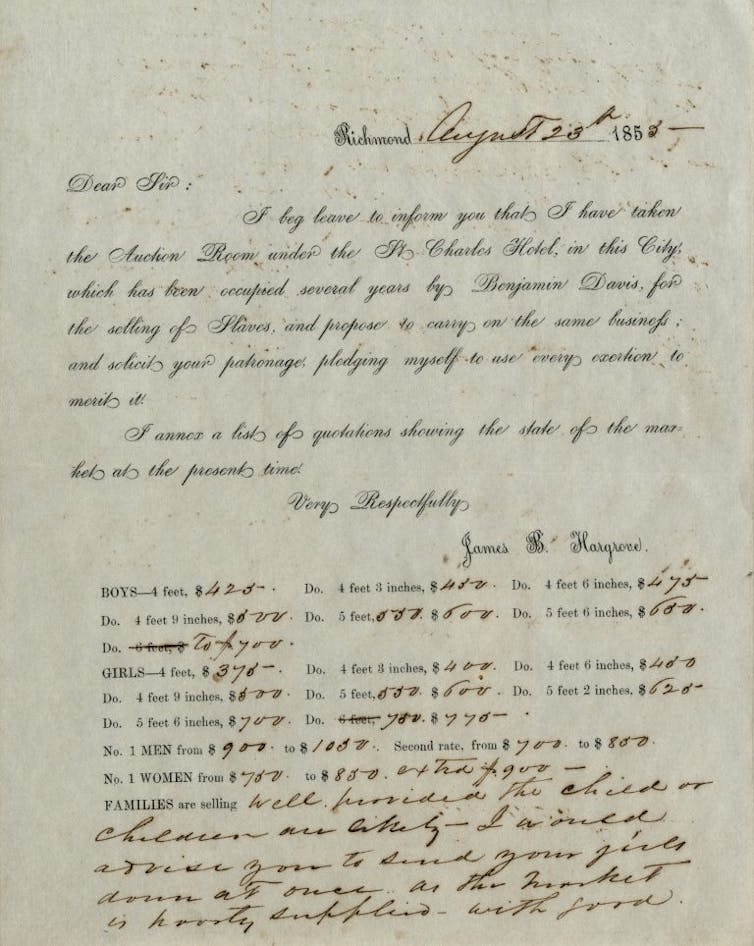 Richmond August 23th 1853-
Dear Sir:
I beg leave to inform you that I have taken
the Auction Room under the St. Charles Hotel, in this City,
which has been occupied several years by Benjamin Davis, for
the selling of Slaves, and propose to carry on the same business;
and solicit your patronage, pledging myself to use every exertion to
merit it.
I annex a list of quotations showing the state of the mar-
ket at the present time.
Very Respectfully
James B. Hargrove.
BOYS—4 feet, $425-. Do. 4 feet 3 inches, $450. Do. 4 feet 6 inches, $475-
Do. 4 feet 9 inches, $500. Do. 5 feet, 550. $600. Do. 5 feet 6 inches, $650.
Do. 6 feet, $ to $700.
GIRLS—4 feet, $375-. Do. 4 feet 3 inches, $400. Do. 4 feet 6 inches, $450
Do. 4 feet 9 inches, $500. Do. 5 feet, 550. $600. Do. 5 feet 2 inches, $625-
Do. 5 feet 6 inches, $700. Do. 6 feet, 750. $775-.
No. 1 MEN from $900. to $1050. Second rate, from $700. to $850.
No. 1 WOMEN from $750. to $850. extra $900-
FAMILIES are selling well. provided the child or
children are likely- I would
advise you to send your girls
down at once as the market
is poorly supplied- with good.